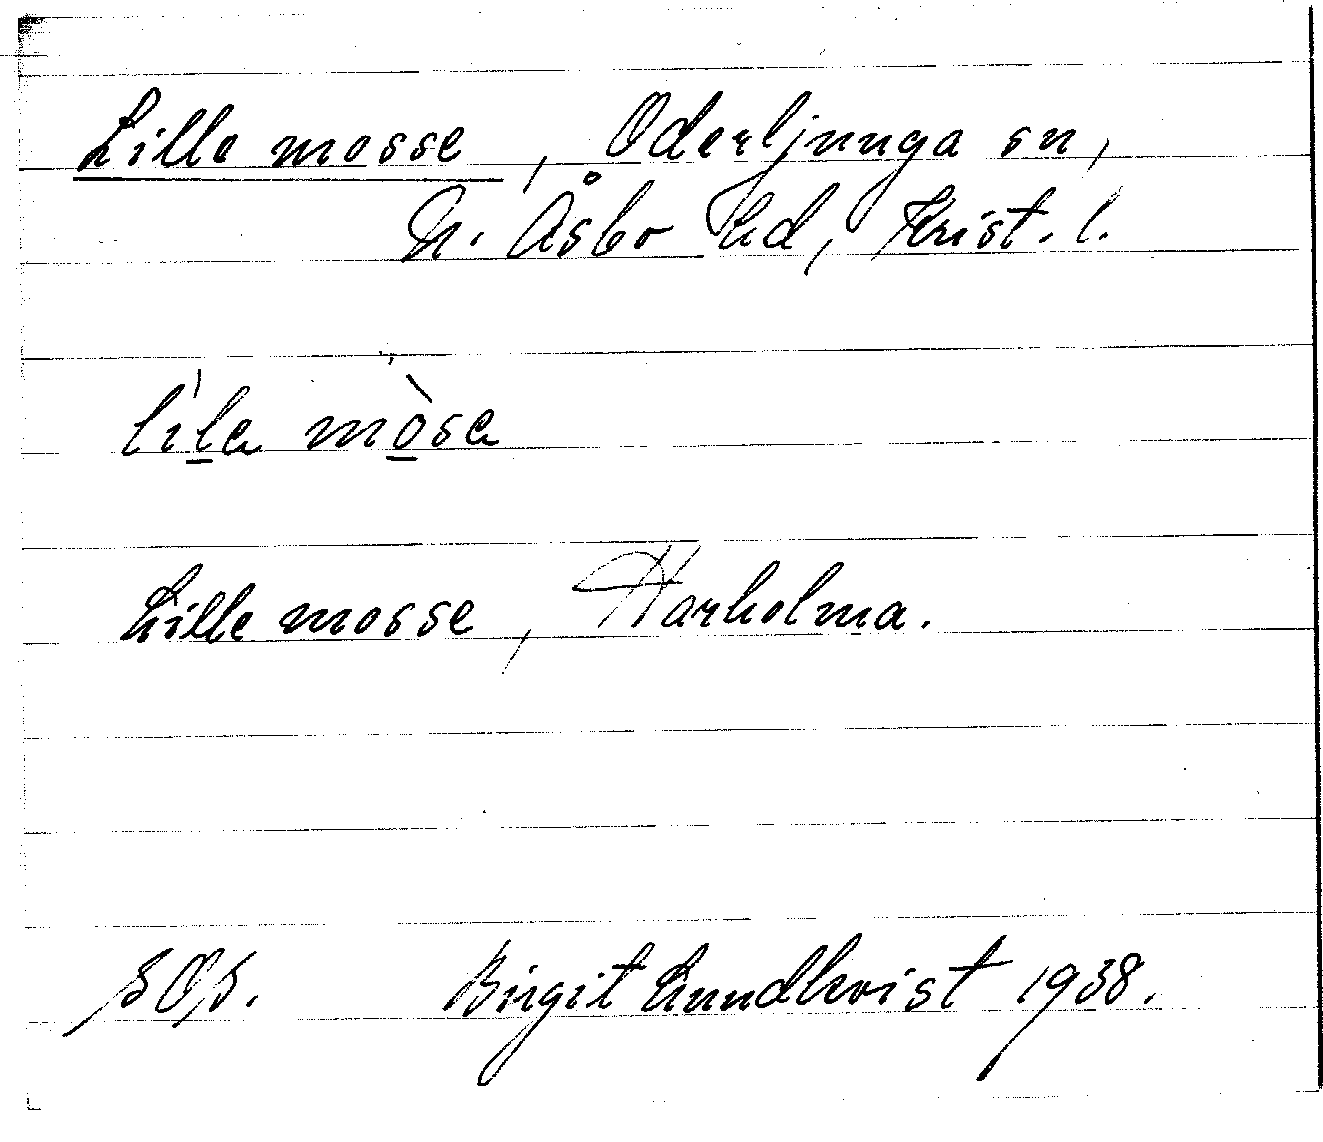 Lille mosse, Oderljunga sn,
N. Åsbo hd, Krist. l.
lìla mòsa
Lille mosse, Harholma.
SOS. Birgit Lundkvist 1938.